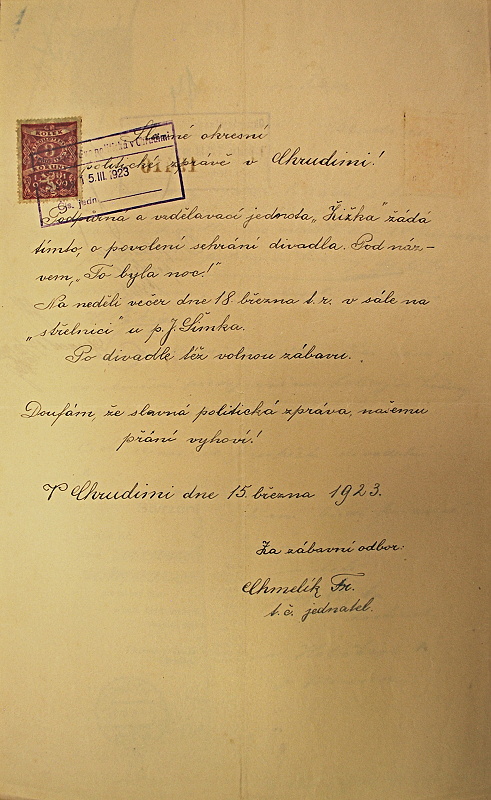 Slavné okresní
politické zprávě v Chrudimi!
15. III. 1923
Čís. jedn.
Podpůrna a vzdělavací jednota „Žižka" žádá
tímto, o povolení sehrání divadla. Pod náz-
vem, „To byla noc!"
Na neděli večer dne 18 března t.r. v sále na
„střelnici" u p. J. Šimka.
Po divadle též volnou zábavu.
Doufám, že slavná politická zpráva, našemu
přání vyhoví!
V Chrudimi dne 15. března 1923.
Za zábavní odbor:
Chmelík Fr.
t. č. jednatel.